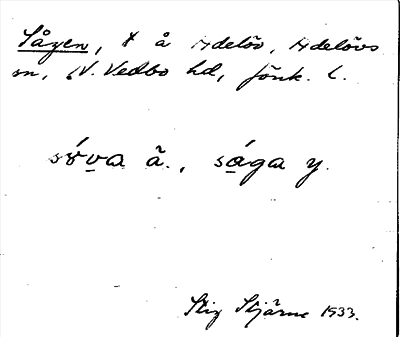 Sågen, t å Adelöv, Adelövs
sn, N. Vedbo hd, Jönk. l.
sóva ä., sága y.
Stig Stjärne 1933.